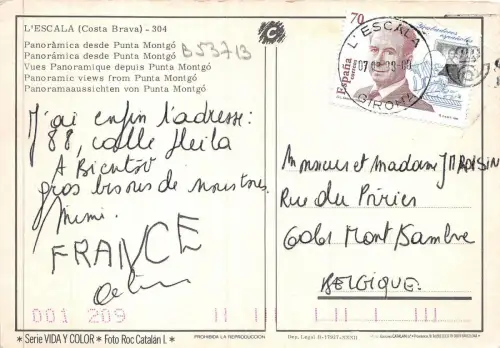 L'ESCALA (Costa Brava) - 304
Panoràmica desde Punta Montgó
Panorámica desde Punta Montgó
Vues Panoramique depuis Punta Montgó
Panoramic views from Punta Montgó
Panoramaaussichten von Punta Montgó
B53713
J'ai enfin l'adresse:
88, calle
A Bientôt
gros bisous de nous tous.
Mimi.
FRANCE
70
España
L'ESCALA
GIRONA
Monsieur et Madame
Rue du
6061 Mont
BELGIQUE
001 209
* Serie VIDA Y COLOR * Foto Roc Catalán I. *
PROHIBIDA LA REPRODUCCION